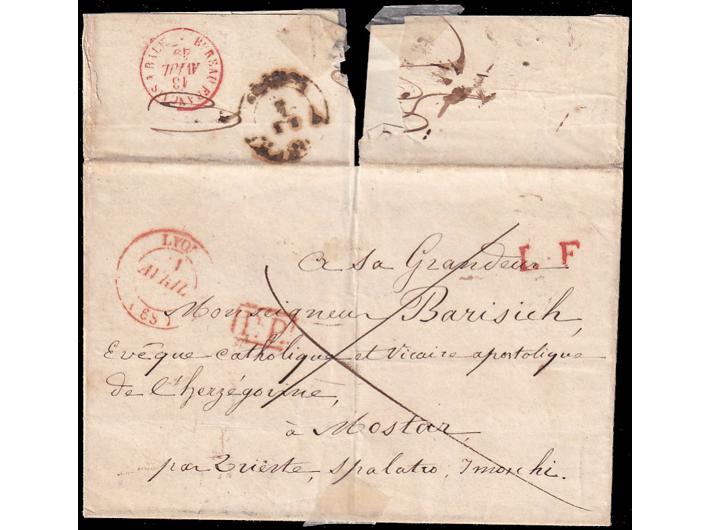 BUREAU FRANÇ
13
AVRIL
LYON
1
AVRIL
(68)
P.P.
L. F
a sa Grandeur
Monseigneur Barisich,
Evêque catholique et Vicaire apostolique
de l'herzégovine,
à Mostar,
par Trieste, Spalatro, Imoschi.